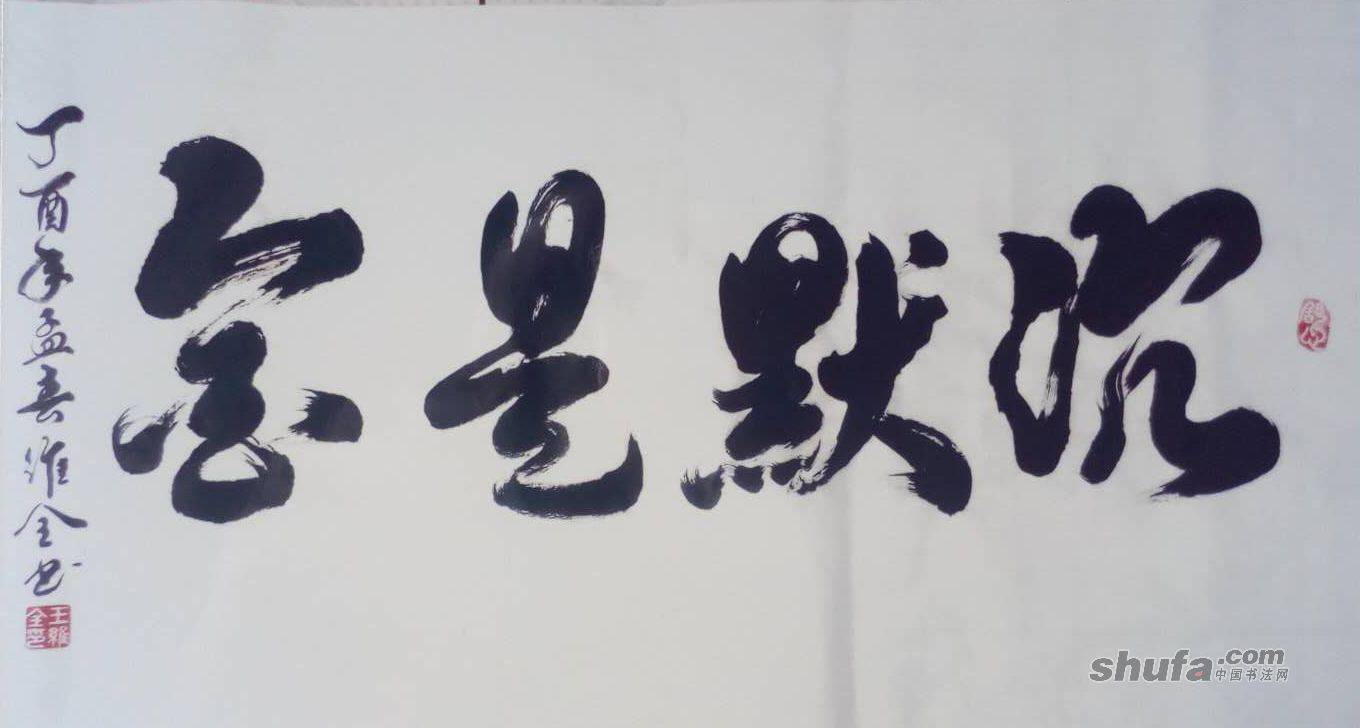 沉默是金
丁酉年孟春维全书
王维全印
shufa.com
中国书法网